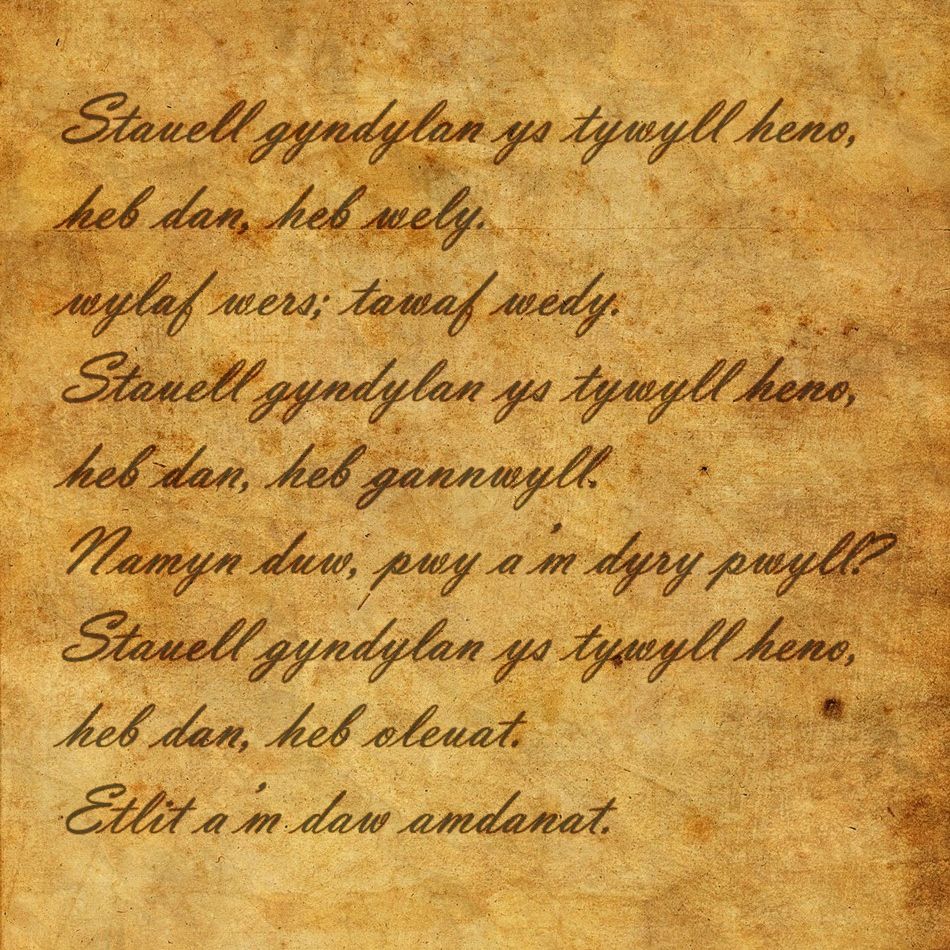 Stauell gyndylan ys tywyll heno,
heb dan, heb wely.
wylaf wers; tawaf wedy.
Stauell gyndylan ys tywyll heno,
heb dan, heb gannwyll.
Namyn duw, pwy a'm dyry pwyll?
Stauell gyndylan ys tywyll heno,
heb dan, heb oleuat.
Etlit a'm daw amdanat.